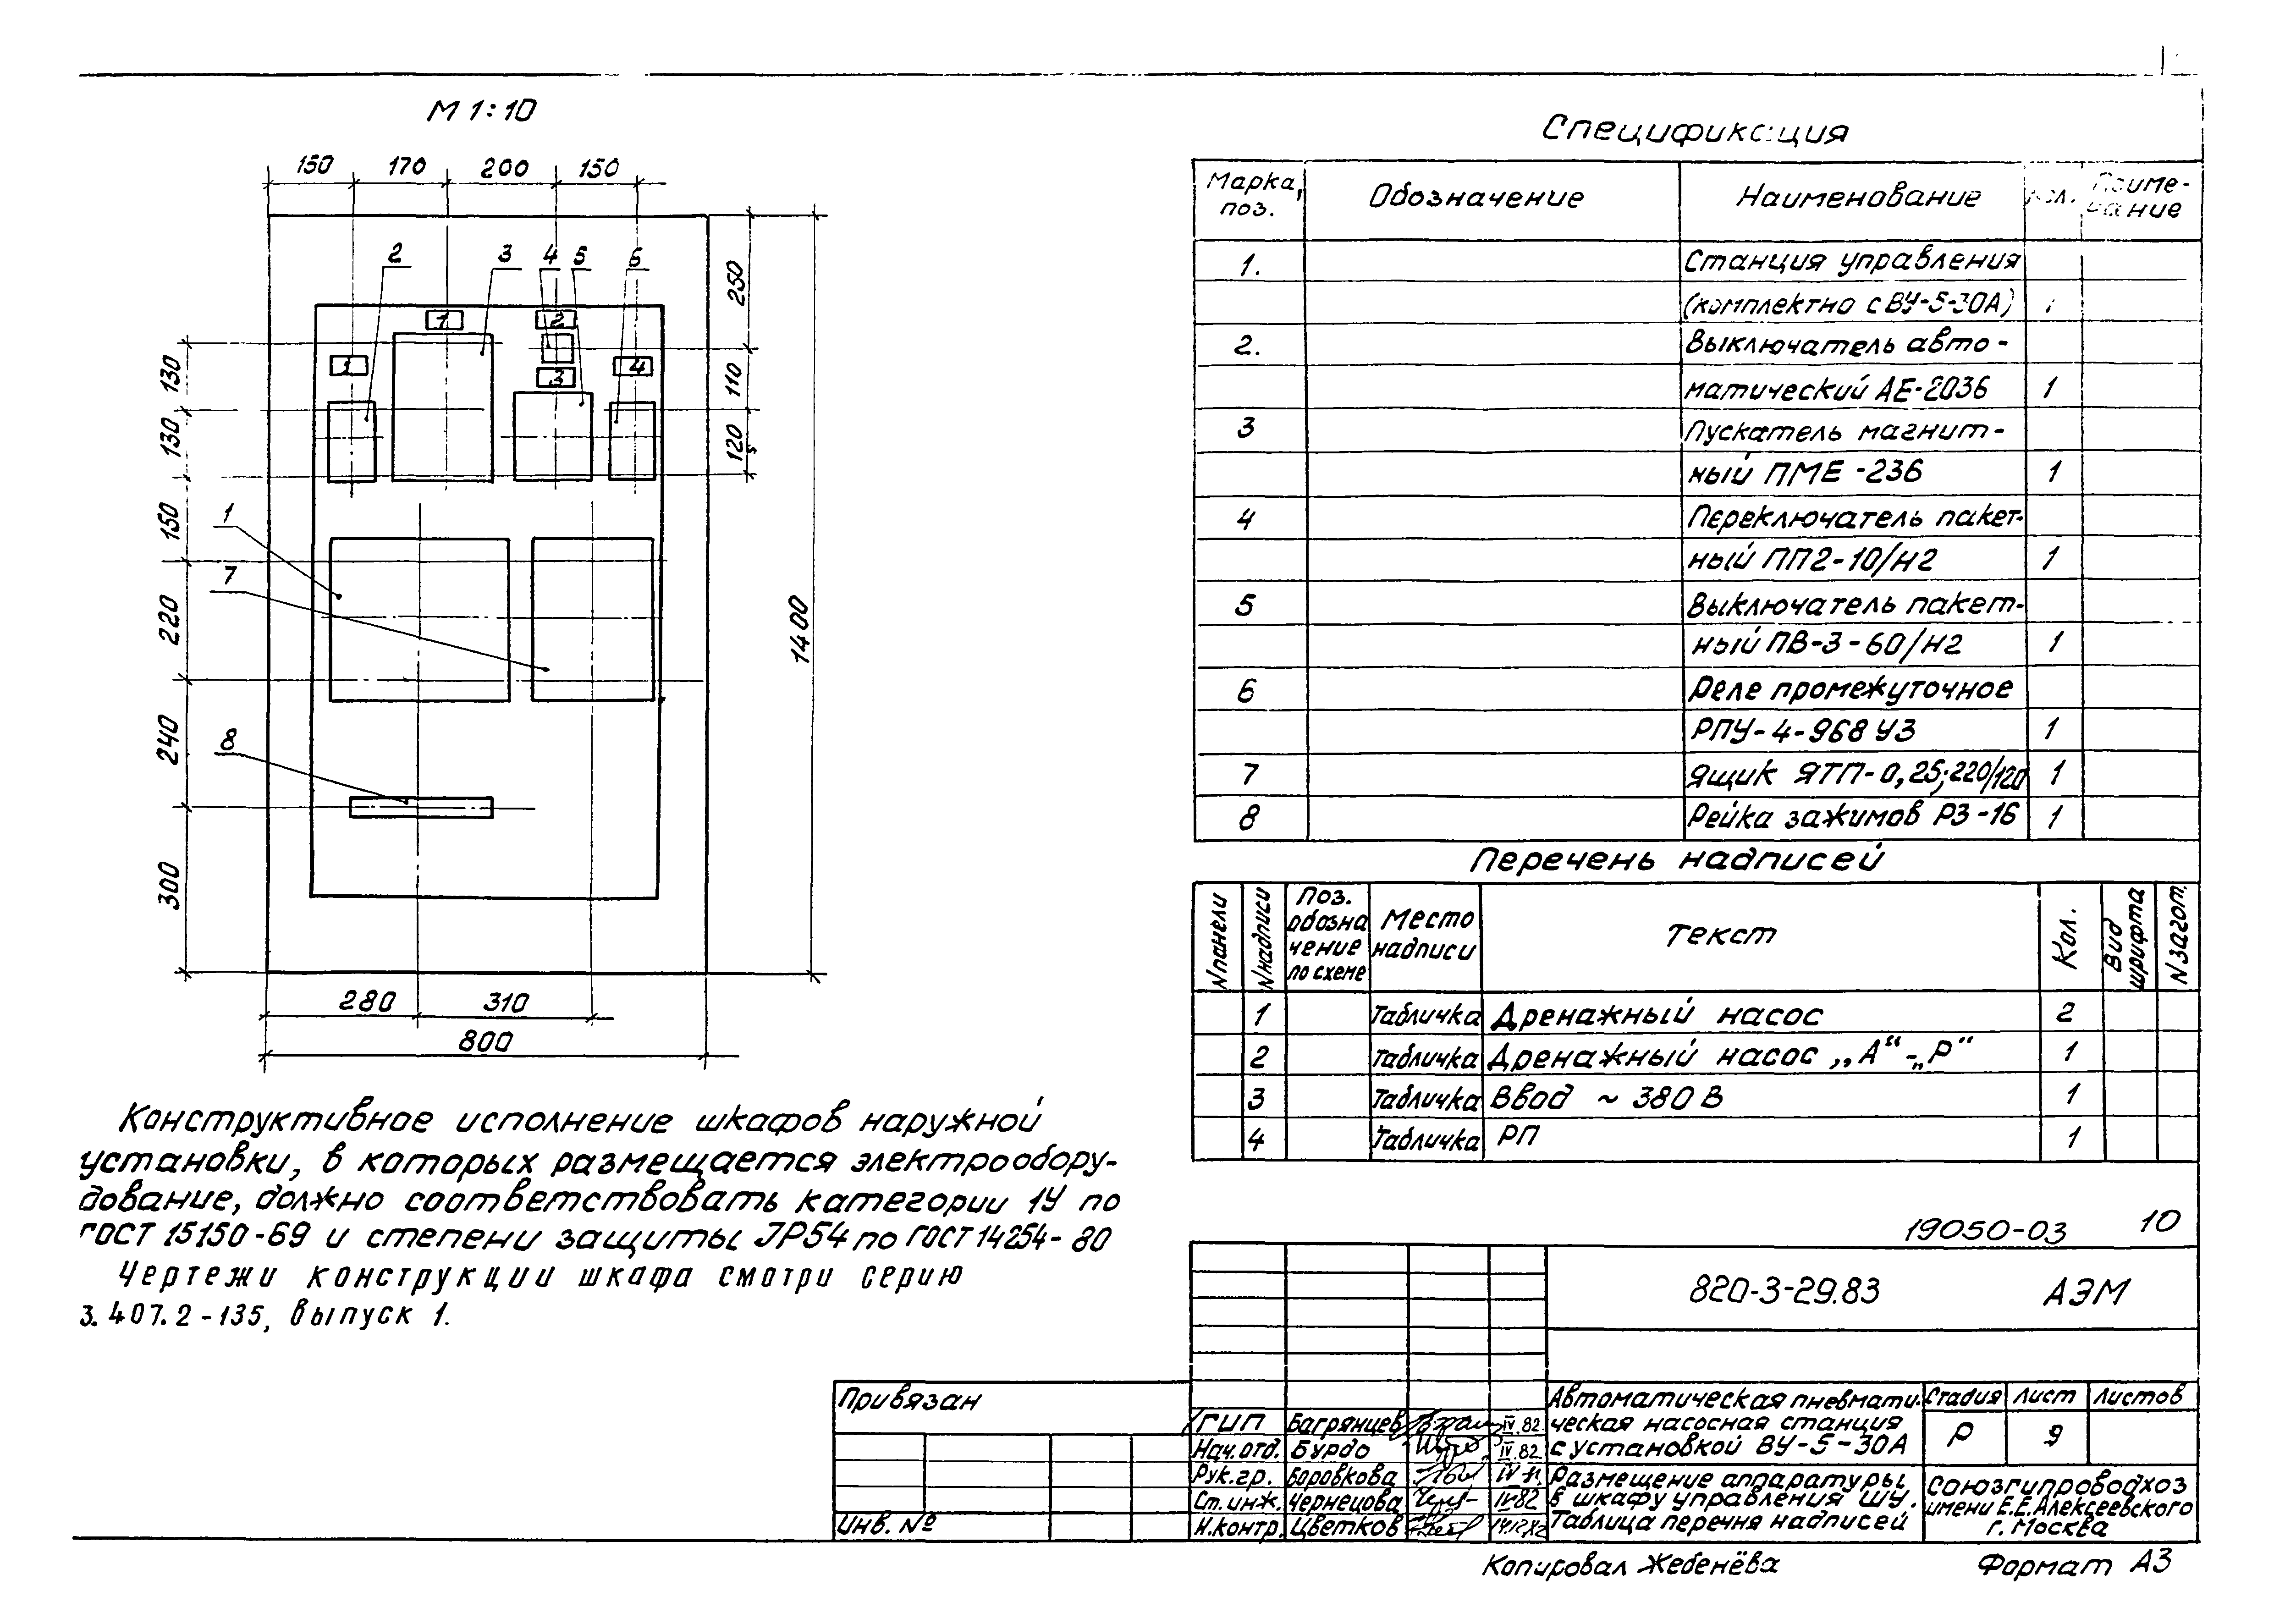 М 1:10
150 170 200 150
2 3 4 5 6
1 2
1 3 4
250 110 120
130 130 150 220 240 300
1
7
8
1400
280 310
800
Конструктивное исполнение шкафов наружной
установки, в которых размещается электрообору-
дование, должно соответствовать категории 1У по
ГОСТ 15150-69 и степени защиты JP54 по ГОСТ 14254-80
Чертежи конструкции шкафа смотри серию
3.407.2-135, выпуск 1.
Спецификация
Марка, поз. Обозначение Наименование Кол. Приме-
чание
1. Станция управления
(комплектно с ВУ-5-30А)
2. Выключатель авто-
матический АЕ-2036 1
3 Пускатель магнит-
ный ПМЕ-236 1
4 Переключатель пакет-
ный ПП2-10/Н2 1
5 Выключатель пакет-
ный ПВ-3-60/Н2 1
6 Реле промежуточное
РПУ-4-968 У3 1
7 Ящик ЯТП-0,25;220/120 1
8 Рейка зажимов РЗ-16 1
Перечень надписей
N панели N надписи Поз. обозна чение по схеме Место надписи Текст Кол. Вид шрифта N загот.
1 Табличка Дренажный насос 2
2 Табличка Дренажный насос „А“-„Р“ 1
3 Табличка Ввод ~ 380 В 1
4 Табличка РП 1
19050-03 10
820-3-29.83 АЭМ
Привязан
Инв. №
ГИП Багрянцев IV 82.
Нач.отд. Бурдо IV.82
Рук.гр. Боровкова
Ст.инж. Чернецова IV82
Н.контр. Цветков
Автоматическая пневмати-
ческая насосная станция
с установкой ВУ-5-30А
Стадия Лист Листов
Р 9
Размещение аппаратуры
в шкафу управления ШУ.
Таблица перечня надписей
Союзгипроводхоз
имени Е.Е.Алексеевского
г. Москва
Копировал Жебенёва Формат А3